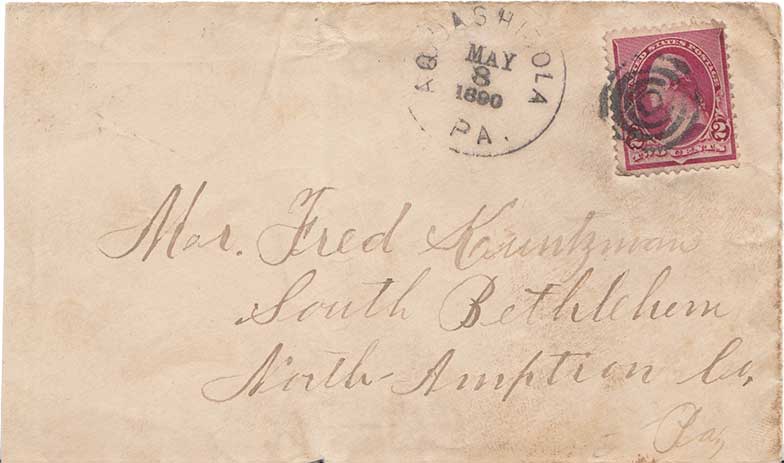 AQUASHICOLA
MAY
8
1890
PA.
UNITED STATES POSTAGE
2 2
TWO CENTS
Mr. Fred Kuntzman
South Bethlehem
North-Amption Co,
Pa,